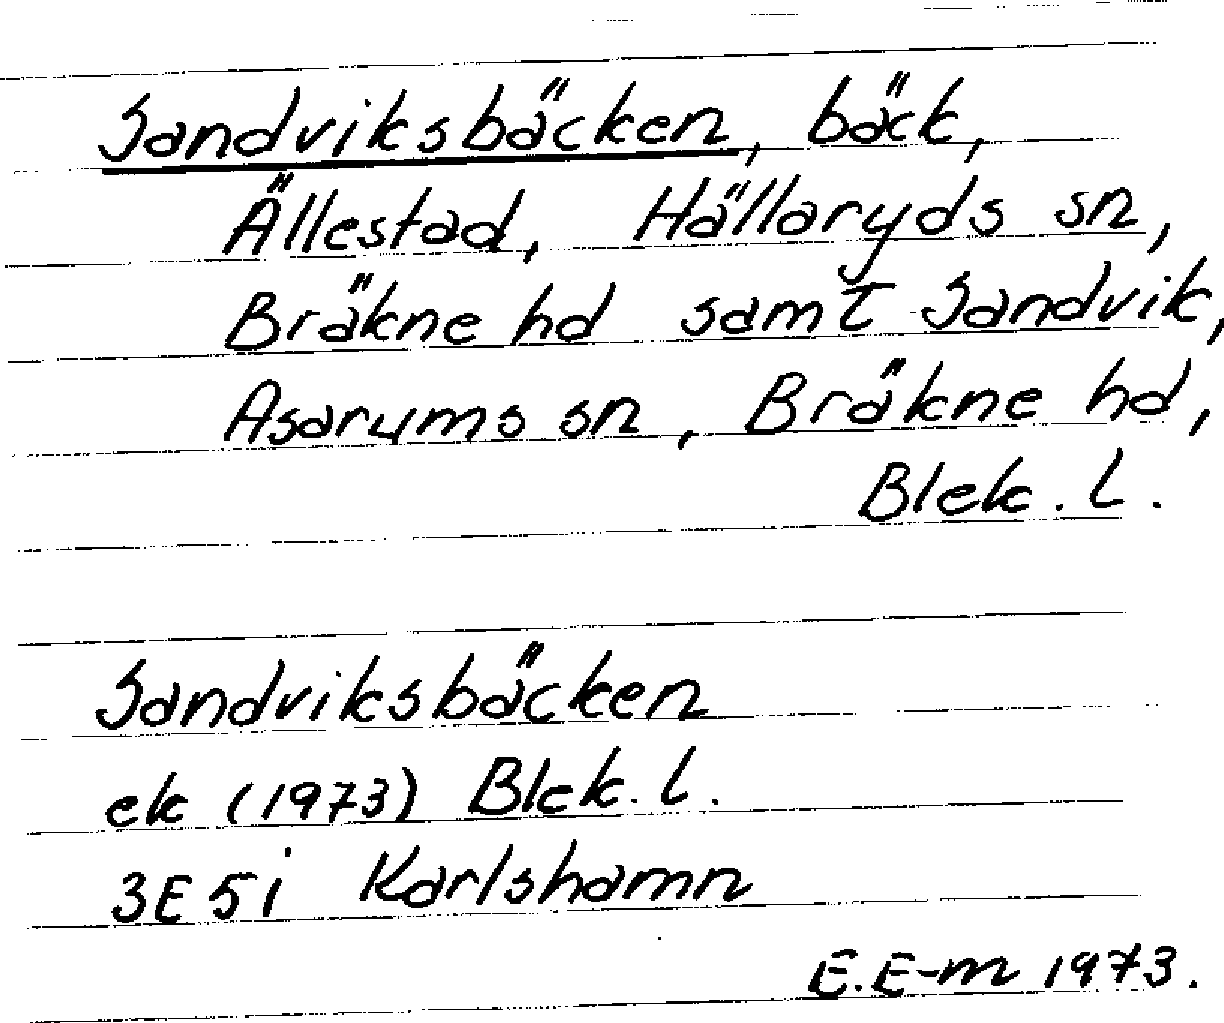 Sandviksbäcken, bäck,
Ällestad, Hällaryds sn,
Bräkne hd samt Sandvik,
Asarums sn, Bräkne hd,
Blek. l.
Sandviksbäcken
ek (1973) Blek. l.
3E 5i Karlshamn
E. E-m 1973.